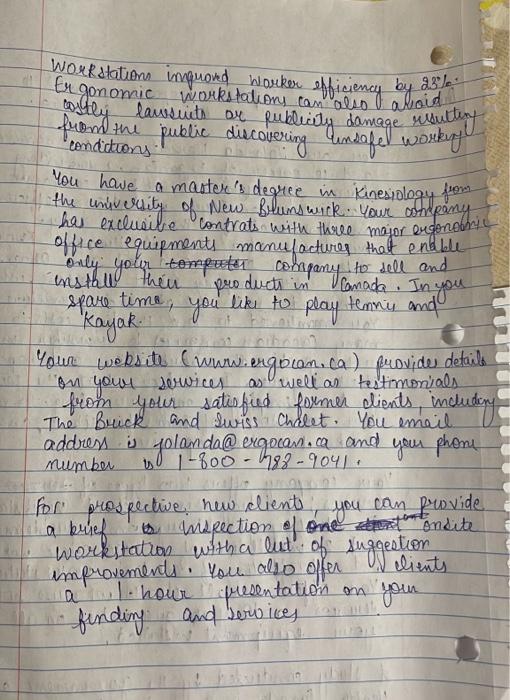 Workstations improved worker efficiency by 23%.
Ergonomic workstations can also avoid
costly lawsuits or publicity damage resulting
from the public discovering unsafe working
conditions.
You have a master's degree in Kinesiology from
the university of New Brunswick. Your company
has exclusive contrats with three major ergonomic
office equipments manufacturing that enable
only your computer company to sell and
install their products in Canada. In you
spare time, you like to play tennis and
Kayak.
Your website (www.ergocan.ca) provides details
on your services as well as testimonials
from your satisfied former clients, including
The Brick and Swiss Chalet. You email
address is yolanda@ergocan.ca and your phone
number is 1-800-788-9041.
For prospective new clients, you can provide
a brief inspection of one onsite
workstation with a list of suggestion
improvements. You also offer clients
a 1-hour presentation on your
finding and services